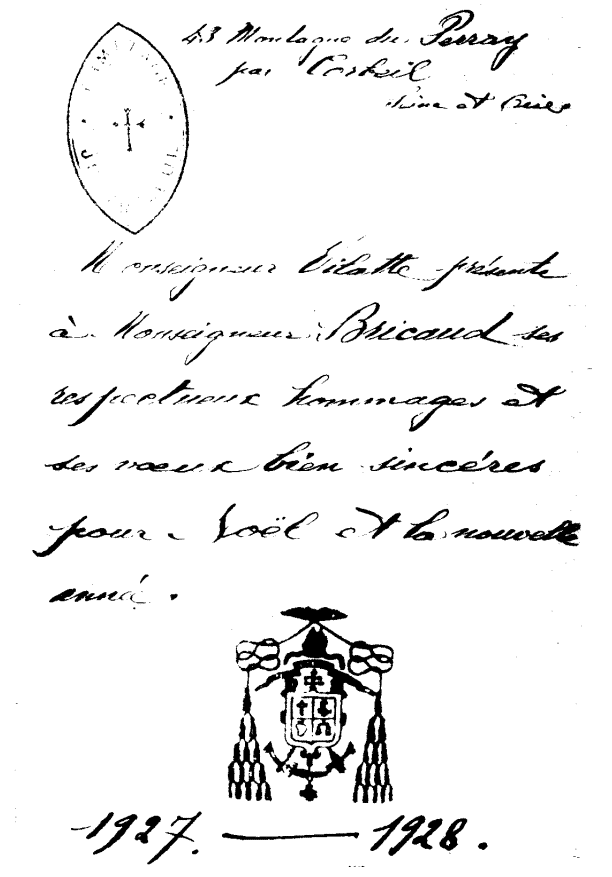 43 Montagne du Perray
par Corbeil
Seine et Oise
L'ERMITAGE
Monseigneur Vilatte présente
à Monseigneur Bricaud ses
respectueux hommages et
ses vœux bien sincéres
pour Noël et la nouvelle
anné.
1927. — 1928.